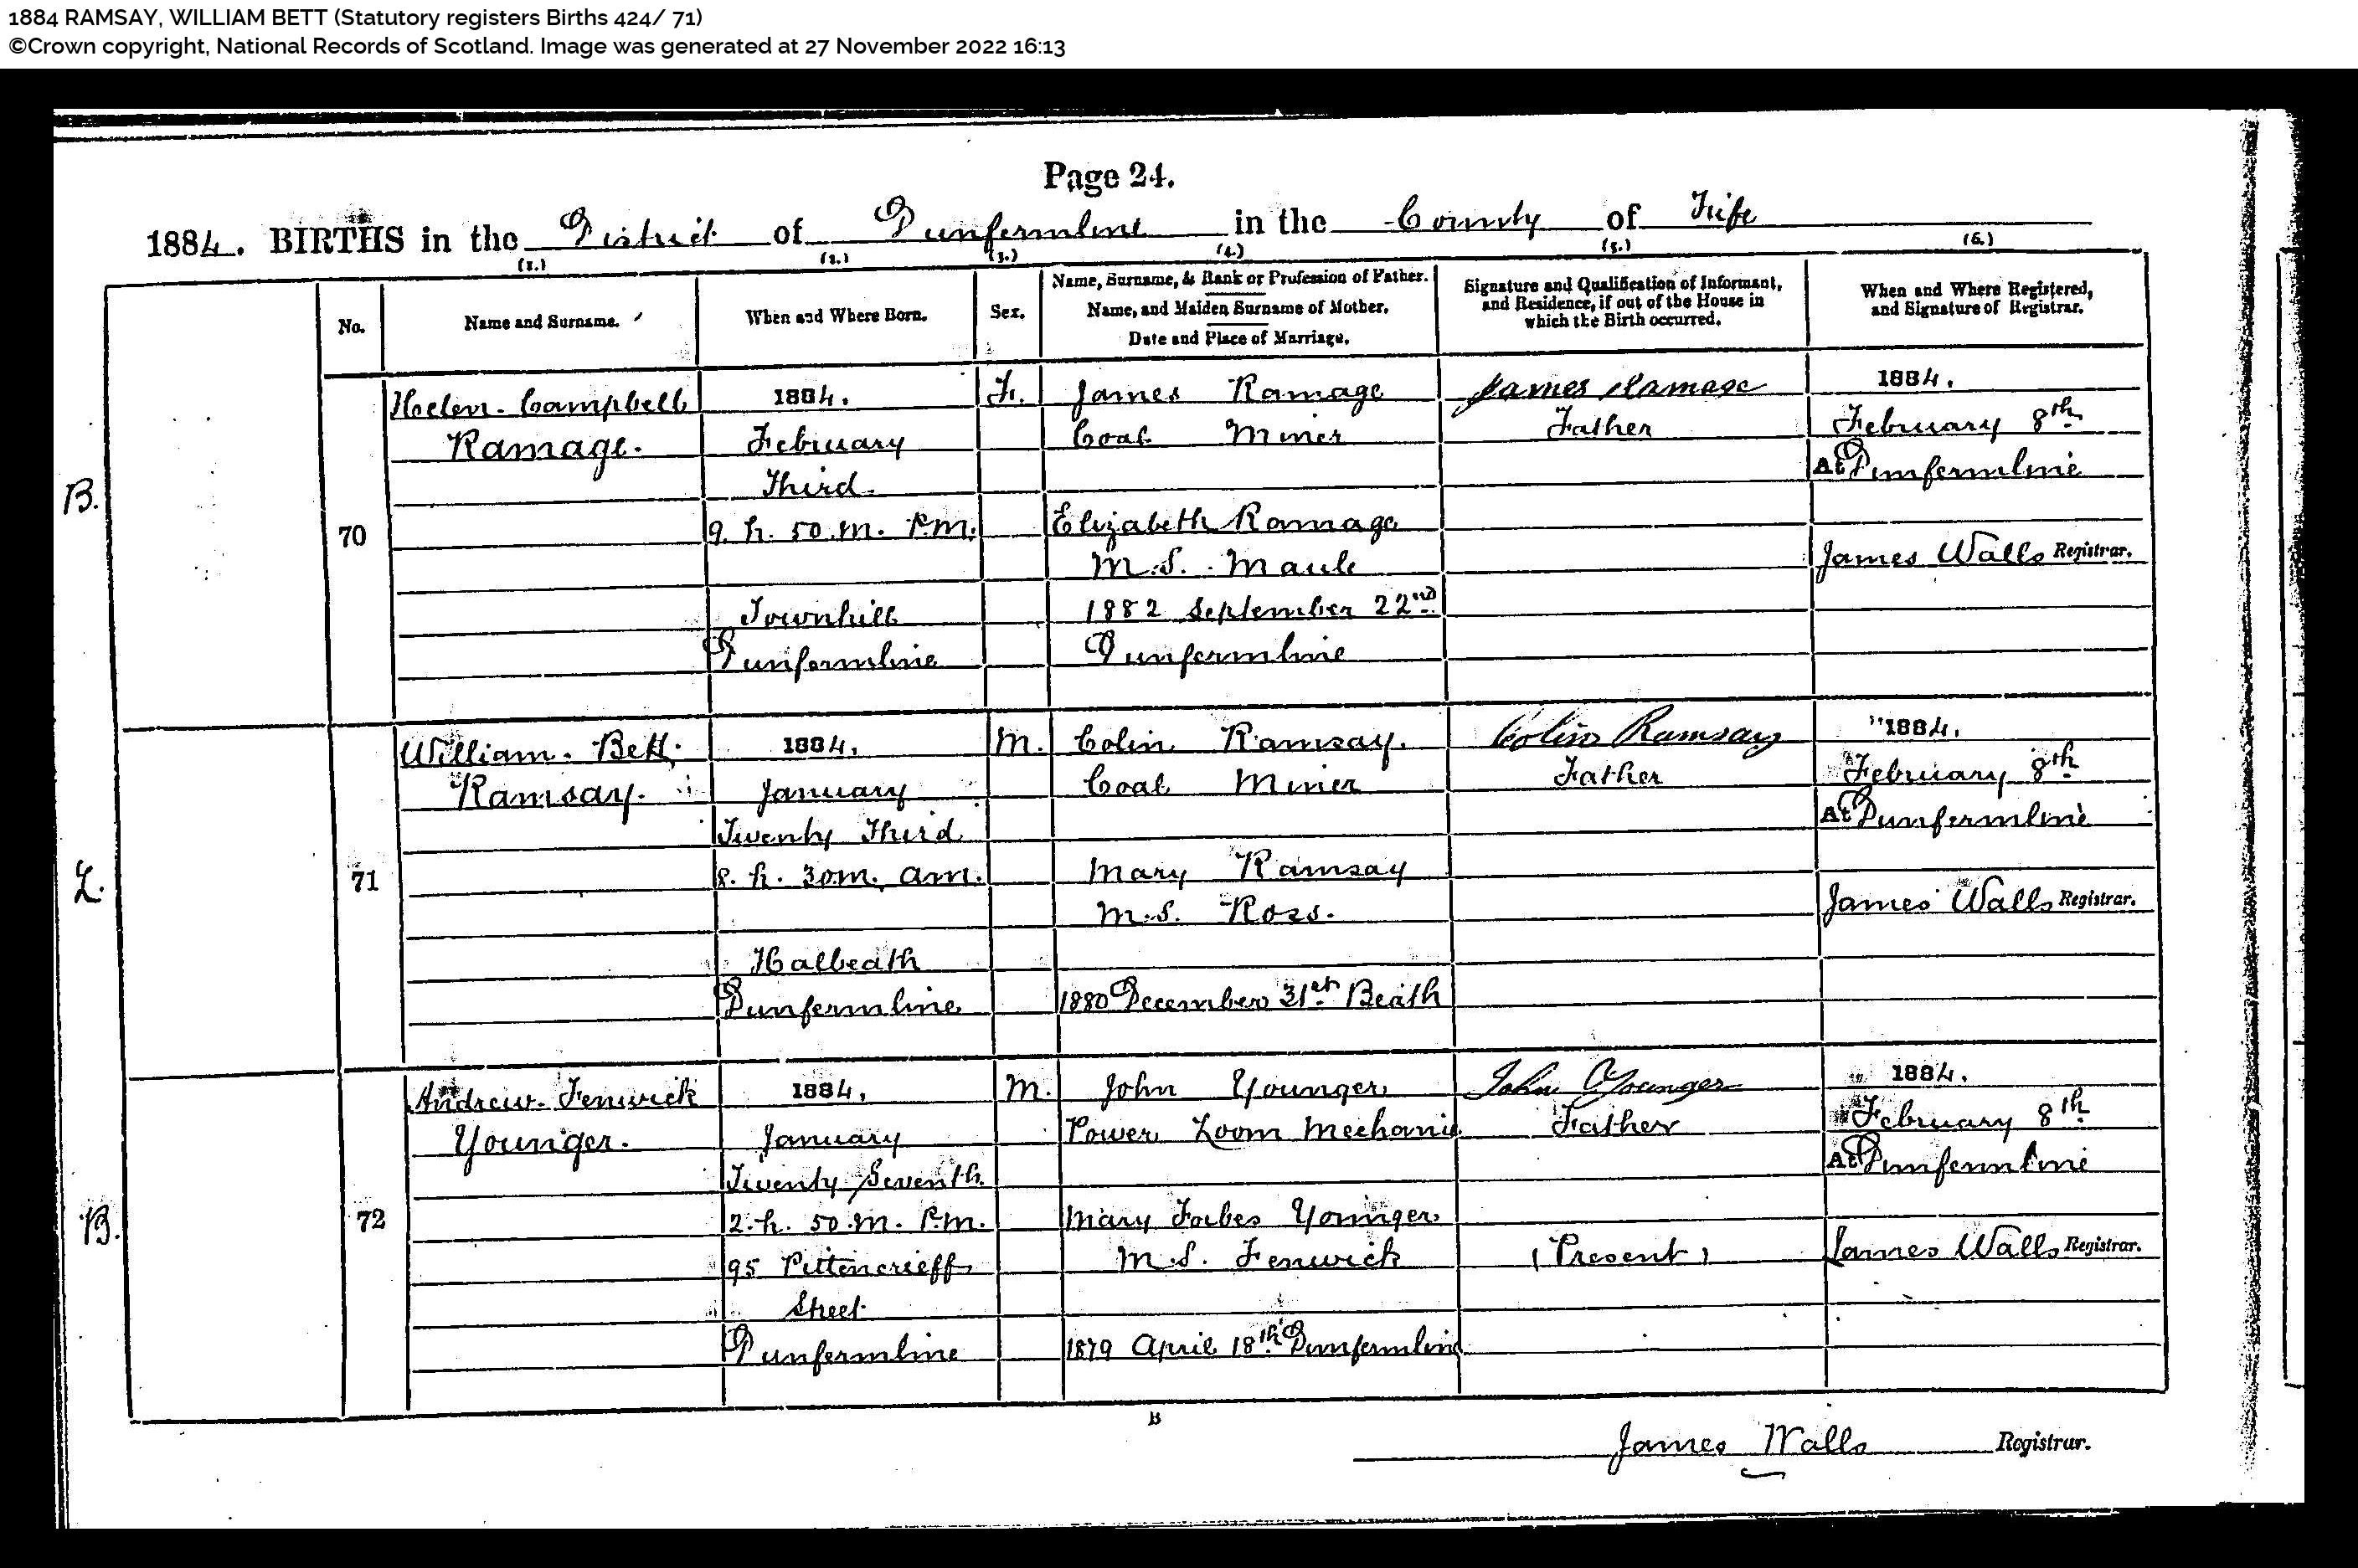 1884 RAMSAY, WILLIAM BETT (Statutory registers Births 424/ 71)
©Crown copyright, National Records of Scotland. Image was generated at 27 November 2022 16:13
Page 24.
1884. BIRTHS in the District of Dunfermline in the County of Fife
(1.) (2.) (3.) (4.) (5.) (6.)
No.
Name and Surname.
When and Where Born.
Sex.
Name, Surname, & Rank or Profession of Father.
Name, and Maiden Surname of Mother.
Date and Place of Marriage.
Signature and Qualification of Informant,
and Residence, if out of the House in
which the Birth occurred.
When and Where Registered,
and Signature of Registrar.
B.
70
Helen Campbell
Ramage.
1884.
February
Third
9. h. 50. m. P.M.
Townhill
Dunfermline
F.
James Ramage
Coal Miner
Elizabeth Ramage
M.S. Maule
1882 September 22nd
Dunfermline
James Ramage
Father
1884.
February 8th
At Dunfermline
James Walls Registrar.
L.
71
William Bett
Ramsay.
1884.
January
Twenty Third
8. h. 30 m. am.
Halbeath
Dunfermline
M.
Colin Ramsay.
Coal Miner
Mary Ramsay
M.S. Ross.
1880 December 31st Beath
Colin Ramsay
Father
1884.
February 8th
At Dunfermline
James Walls Registrar.
B.
72
Andrew Fenwick
Younger.
1884.
January
Twenty Seventh
2. h. 50. m. P.m.
95 Pittencrieff
Street
Dunfermline
M.
John Younger
Power Loom Mechanic
Mary Forbes Younger
M.S. Fenwick
1879 April 18th Dunfermline
John Younger
Father
(Present)
1884.
February 8th
At Dunfermline
James Walls Registrar.
B
James Walls Registrar.